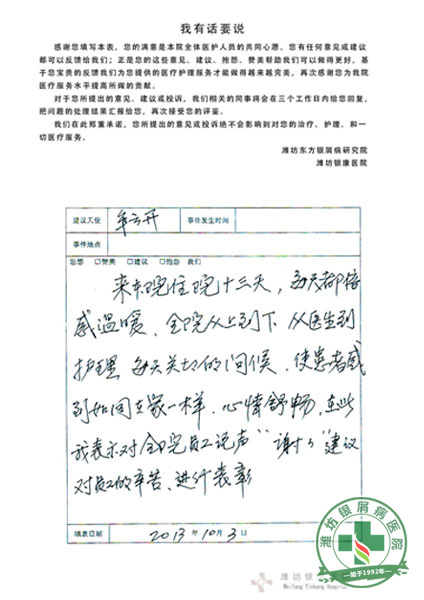 我有话要说
感谢您填写本表，您的满意是本院全体医护人员的共同心愿，您有任何意见或建议
都可以反馈给我们；正是您的这些意见、建议、抱怨、赞美帮助我们可以做得更好，基
于您宝贵的反馈我们为您提供的医疗护理服务才能做得越来越完美，再次感谢您为我院
医疗服务水平提高所做的贡献。
对于您所提出的意见、建议或投诉，我们相关的同事将会在三个工作日内给您回复，
把问题的处理结果汇报给您，再次接受您的评鉴。
我们在此郑重承诺，您所提出的意见或投诉绝不会影响到对您的治疗、护理、和一
切医疗服务。
潍坊东方银屑病研究院
潍坊银康医院
建议天使 牟云开 事件发生时间
事件地点
您想 □赞美 □建议 □抱怨 我们
来东院住院十三天，每天都倍
感温暖，全院从上到下，从医生到
护理，每天关切的问候，使患者感
到如同在家一样，心情舒畅，在此
我表示对全院员工说声"谢谢"建议
对员工的辛苦，进行表彰
填表日期 2013年10月3日
潍坊银
Weifang Yinkang Hospital
潍坊银屑病医院
始于1992年